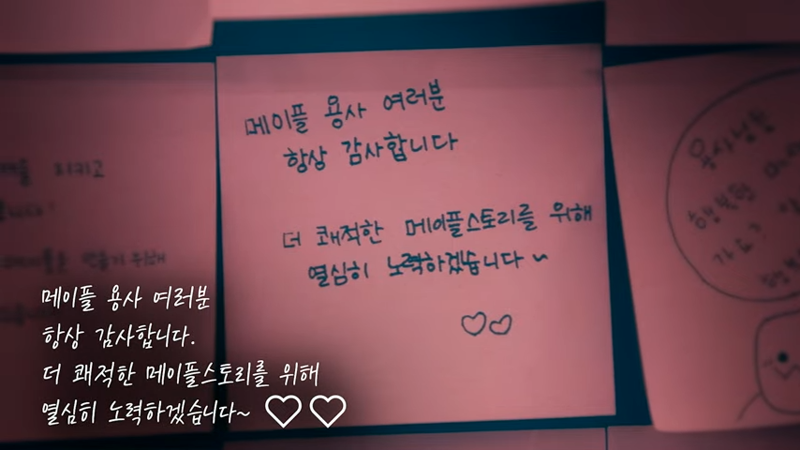 메이플 용사 여러분
항상 감사합니다
더 쾌적한 메이플스토리를 위해
열심히 노력하겠습니다~
♡♡
지키고
위해
용사님들
행복한
가요?
메이플 용사 여러분
항상 감사합니다.
더 쾌적한 메이플스토리를 위해
열심히 노력하겠습니다~ ♡♡